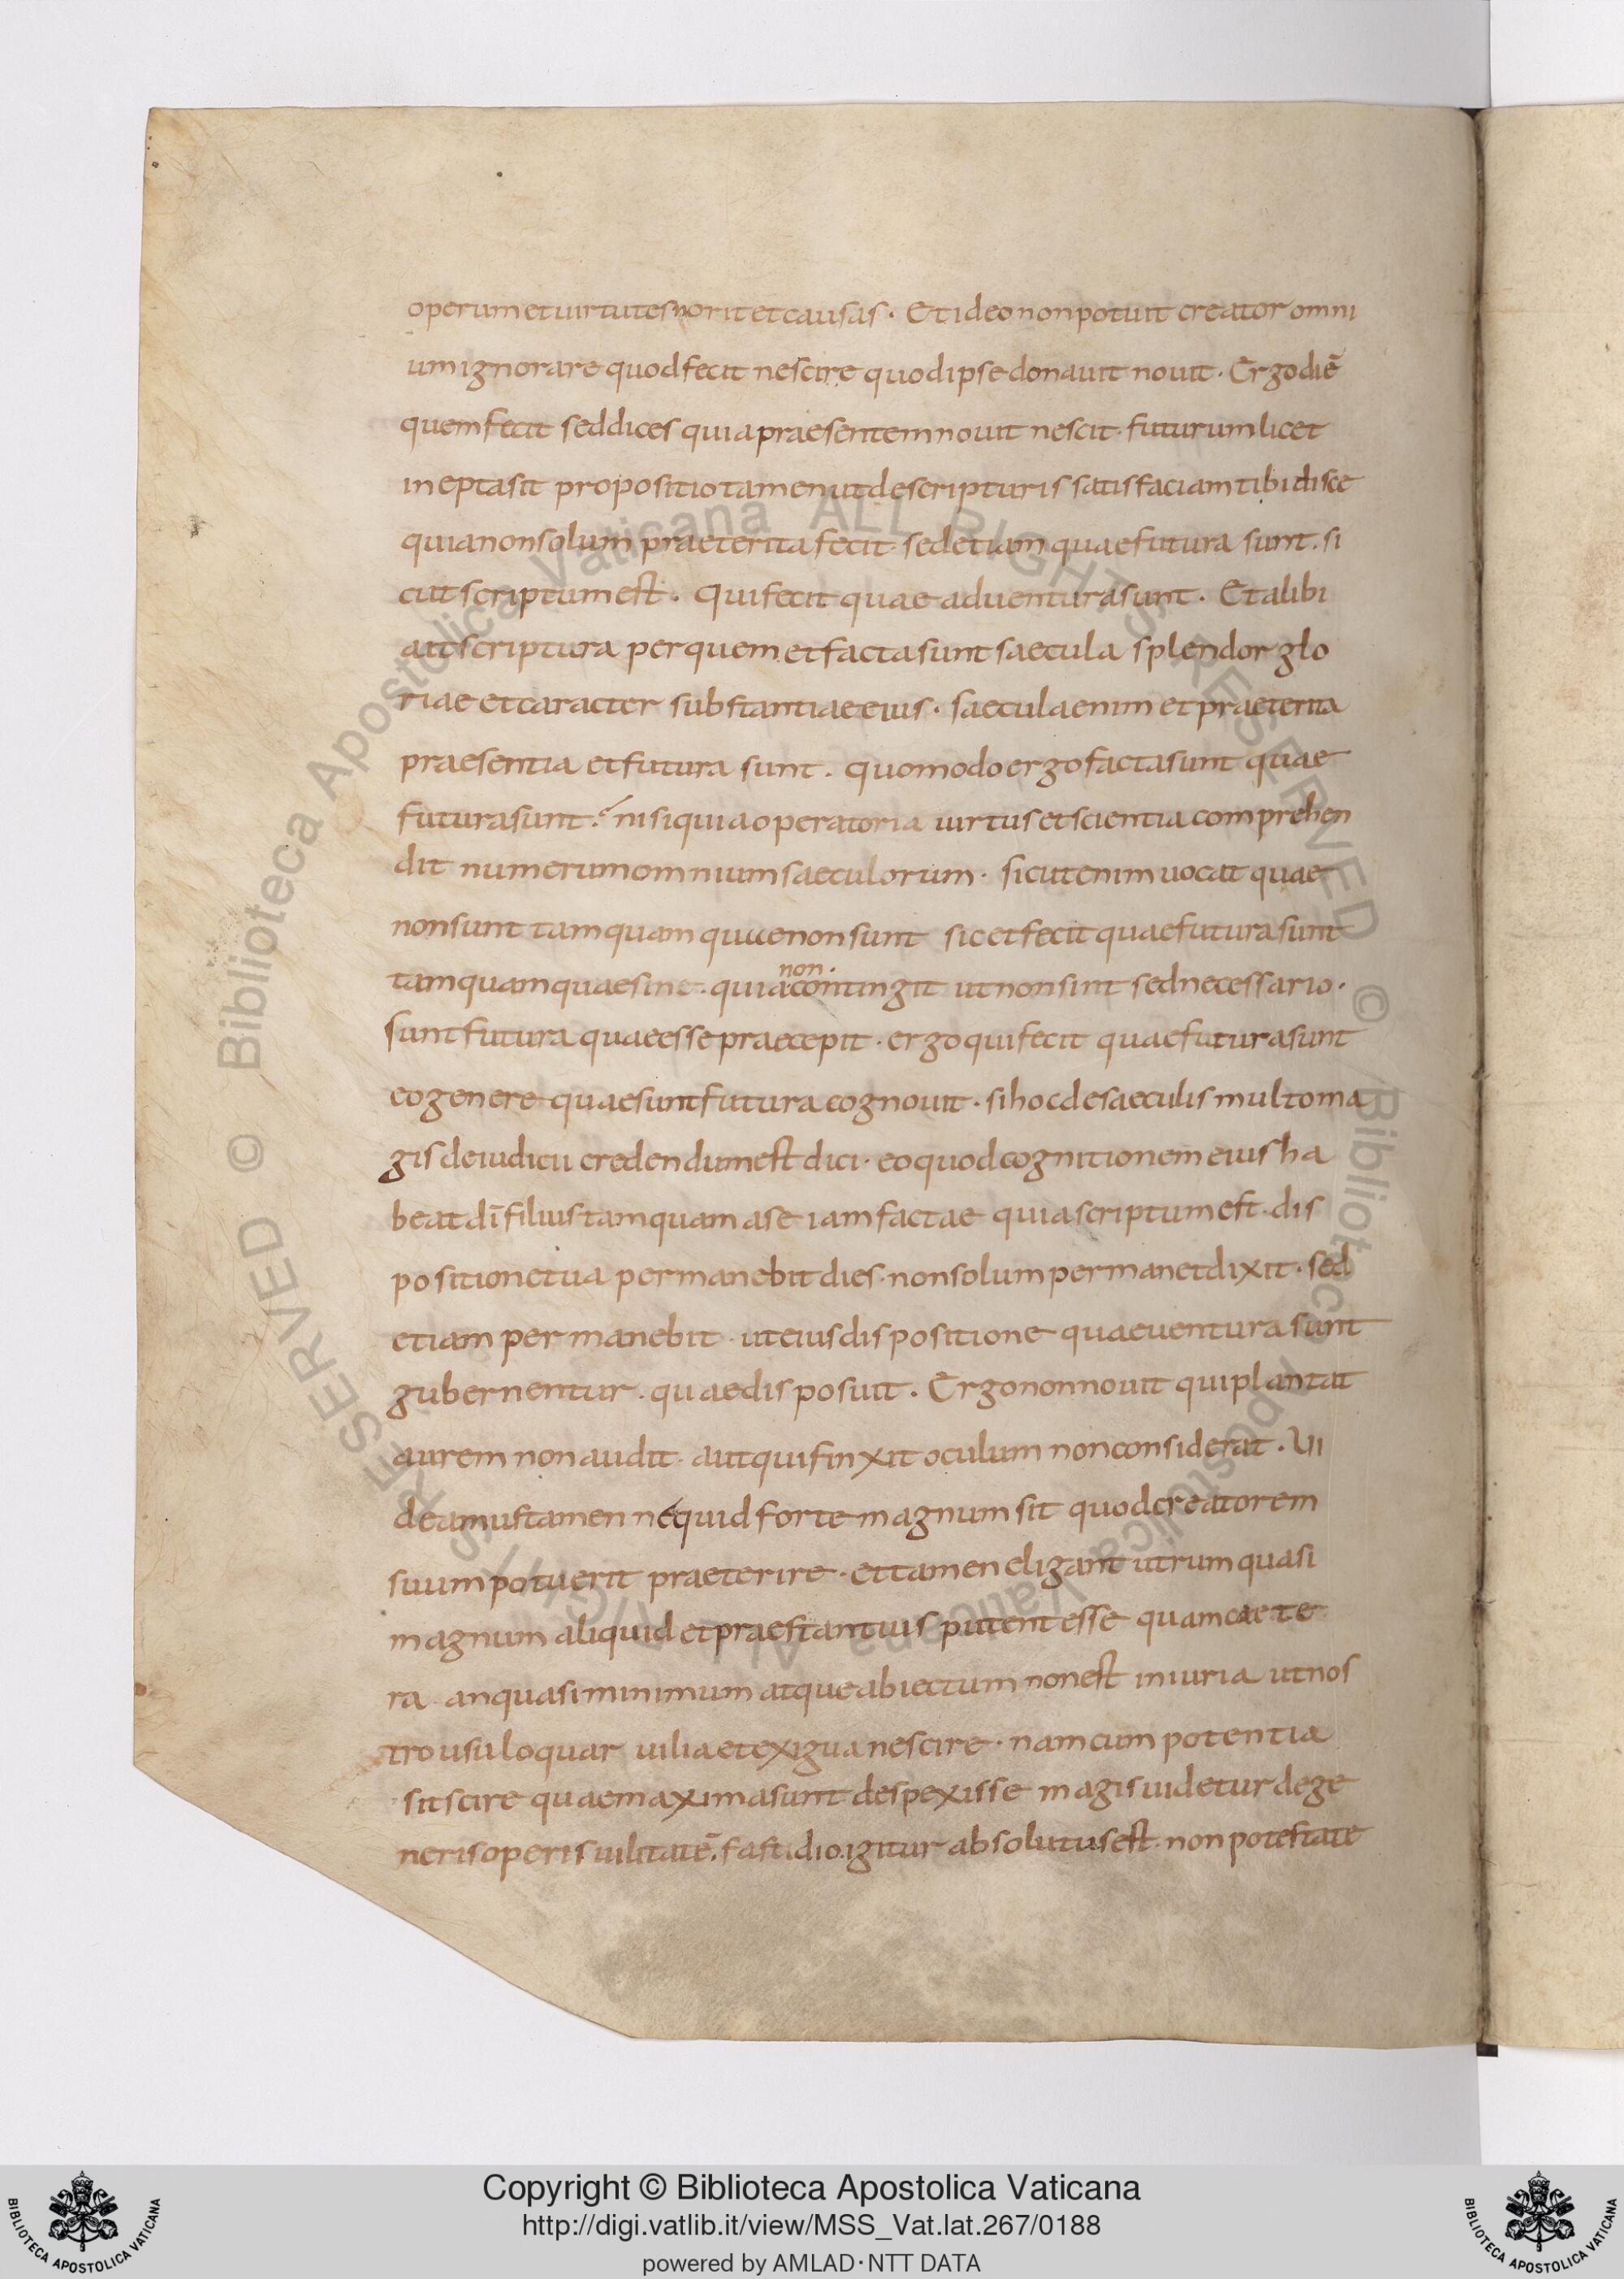 operum et uirtutes norit et causas · Et ideo non potuit creator omni
um ignorare quod fecit nescire quod ipse donauit nouit · Ergo diē
quem fecit sed dices quia praesentem nouit nescit · futurum licet
inepta sit propositio tamen ut de scripturis satisfaciam tibi disce
quia non solum praeterita fecit · sed etiam quae futura sunt · si
cut scriptum est · Qui fecit quae aduentura sunt · Et alibi
ait scriptura per quem et facta sunt saecula splendor glo
riae et caracter substantiae eius · saecula enim et praeterita
praesentia et futura sunt · quomodo ergo facta sunt quae
futura sunt ? nisi quia operatoria uirtus et scientia comprehen
dit numerum omnium saeculorum · sicut enim uocat quae
non sunt tamquam quae non sunt sic et fecit quae futura sunt
tamquam quae sint · quia non contingit ut non sint sed necessario ·
sunt futura quae esse praecepit · ergo qui fecit quae futura sunt
eo genere quae sunt futura cognouit · si hoc de saeculis multo ma
gis de iudicii credendum est dici · eo quod cognitionem eius ha
beat dī filius tamquam a se iam factae quia scriptum est · dis
positione tua permanebit dies · non solum permanet dixit · sed
etiam permanebit · ut eius dispositione quae uentura sunt
gubernentur · quae disposuit · Ergo non nouit qui plantat
aurem non audit · aut qui finxit oculum non considerat · Ui
deamus tamen néquid forte magnum sit quod creatorem
suum potuerit praeterire · et tamen eligant utrum quasi
magnum aliquid et praestantius putent esse quam caete
ra · an quasi minimum atque abiectum non est iniuria ut nos
tro usu loquar uilia et exigua nescire · nam cum potentia
sit scire quae maxima sunt despexisse magis uidetur dege
neris operis uilitatē · fastidio igitur absolutus est · non potestate
Copyright © Biblioteca Apostolica Vaticana
http://digi.vatlib.it/view/MSS_Vat.lat.267/0188
powered by AMLAD · NTT DATA
BIBLIOTECA APOSTOLICA VATICANA
BIBLIOTECA APOSTOLICA VATICANA
© Biblioteca Apostolica Vaticana ALL RIGHTS RESERVED © Biblioteca Apostolica Vaticana ALL RIGHTS RESERVED